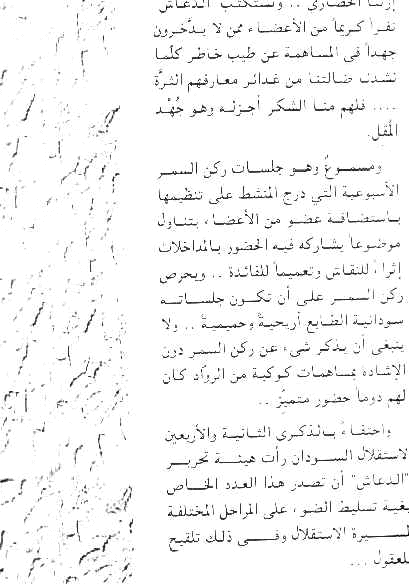 إرثنا الحضاري .. وتستكتب "الدعاش"
نفراً كريماً من الأعضاء ممن لا يدَّخرون
جهداً في المساهمة عن طيب خاطر كلّما
نشدت ضالتنا من غدائر معارفهم الثرَّة
.... فلهم منا الشكر أجزله وهو جُهْد
المُقل.
ومسموعٌ وهو جلسات ركن السمر
الأسبوعية التي درج المنشط على تنظيمها
باستضافة عضو من الأعضاء، يتناول
موضوعاً يشاركه فيه الحضور بالمداخلات
إثراءً للنقاش وتعميماً للفائدة .. ويحرص
ركن السمر على أن تكون جلساته
سودانية الطابع أريحيةً وحميميةً .. ولا
ينبغي أن يذكر شيء عن ركن السمر دون
الإشادة بمساهمات كوكبة من الروّاد كان
لهم دوماً حضور متميّز ..
واحتفاءً بالذكرى الثانية والأربعين
لاستقلال السودان رأت هيئة تحرير
"الدعاش" أن تصدر هذا العدد الخاص
بغية تسليط الضوء على المراحل المختلفة
لمسيرة الاستقلال وفي ذلك تلقيح
للعقول ...